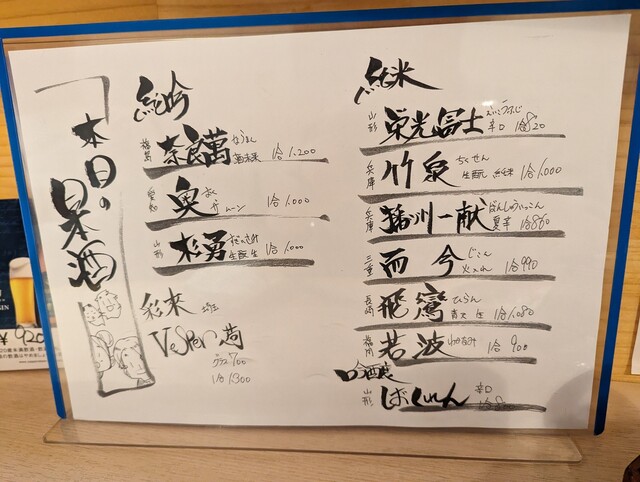 純米
山形 栄光冨士 えいこうふじ 辛口 1合820
兵庫 竹泉 ちくせん 生酛 純米 1合1,000
兵庫 播州一献 ばんしゅういっこん 夏辛 1合860
三重 而今 じこん 火入れ 1合990
長崎 飛鸞 ひらん 生 1合1,080
福岡 若波 わかなみ 1合900
山形 ばくれん 辛口
純吟
福島 奈良萬 ならまん 1合1,200
愛知 奥 おく ムーン 1合1,000
山形 杉勇 すぎいさみ 生酛 生 1合1,000
彩來 埼玉
Vesper
グラス700
1合1300
本日の
酒
¥920